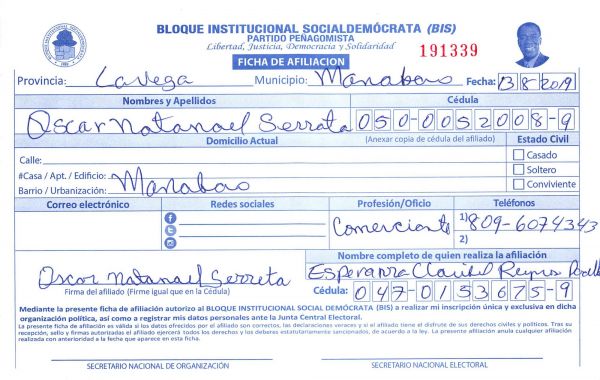 BLOQUE INSTITUCIONAL SOCIALDEMÓCRATA (BIS)
PARTIDO PEÑAGOMISTA
Libertad, Justicia, Democracia y Solidaridad
191339
FICHA DE AFILIACION
Provincia: La vega Municipio: Manabao Fecha: 13/8/2019
Nombres y Apellidos Cédula
Oscar Natanael Serrata 050-0052008-9
Domicilio Actual (Anexar copia de cédula del afiliado) Estado Civil
Calle: Casado
#Casa / Apt. / Edificio: Soltero
Barrio / Urbanización: Manabao Conviviente
Correo electrónico Redes sociales Profesión/Oficio Teléfonos
Comerciante 1) 809-6074343
2)
Nombre completo de quien realiza la afiliación
Oscar Natanael Serreta Esperanza Claribel Reyes
Firma del afiliado (Firme igual que en la Cédula) Cédula: 047-0153675-9
Mediante la presente ficha de afiliación autorizo al BLOQUE INSTITUCIONAL SOCIAL DEMÓCRATA (BIS) a realizar mi inscripción única y exclusiva en dicha
organización política, así como a registrar mis datos personales ante la Junta Central Electoral.
La presente ficha de afiliación es válida si los datos ofrecidos por el afiliado son correctos, las declaraciones veraces y si el afiliado tiene el disfrute de sus derechos civiles y políticos. Tras su
recepción, sello y firmas autorizadas el afiliado ejercerá todos los derechos y los deberes estatutariamente sancionados, de acuerdo a la ley. La presente afiliación anula cualquier afiliación
realizada con anterioridad a la fecha que aparece en esta ficha.
SECRETARIO NACIONAL DE ORGANIZACIÓN SECRETARIO NACIONAL ELECTORAL